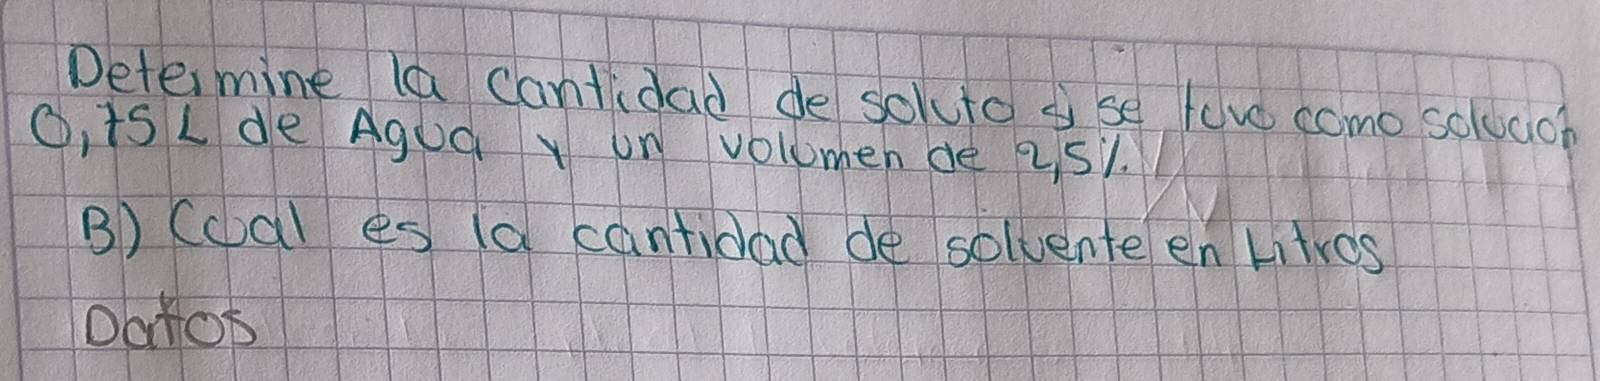 Determine la cantidad de soluto si se tuvo como solucion
0,75 L de Agua y un volumen de 2,5%.
B) Cual es la cantidad de solvente en Litros
Datos